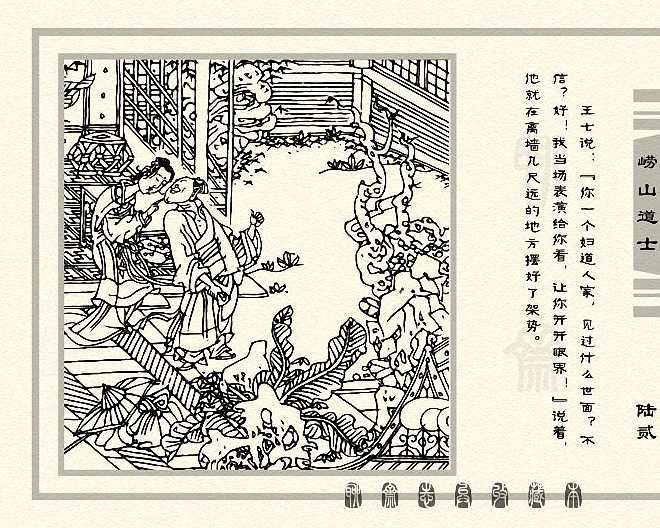 崂山道士
陆贰
王士说：『你一个妇道人家，见过什么世面？不
信？好！我当场表演给你看，让你开开眼界！』说着，
他就在离墙几尺远的地方摆好了架势。